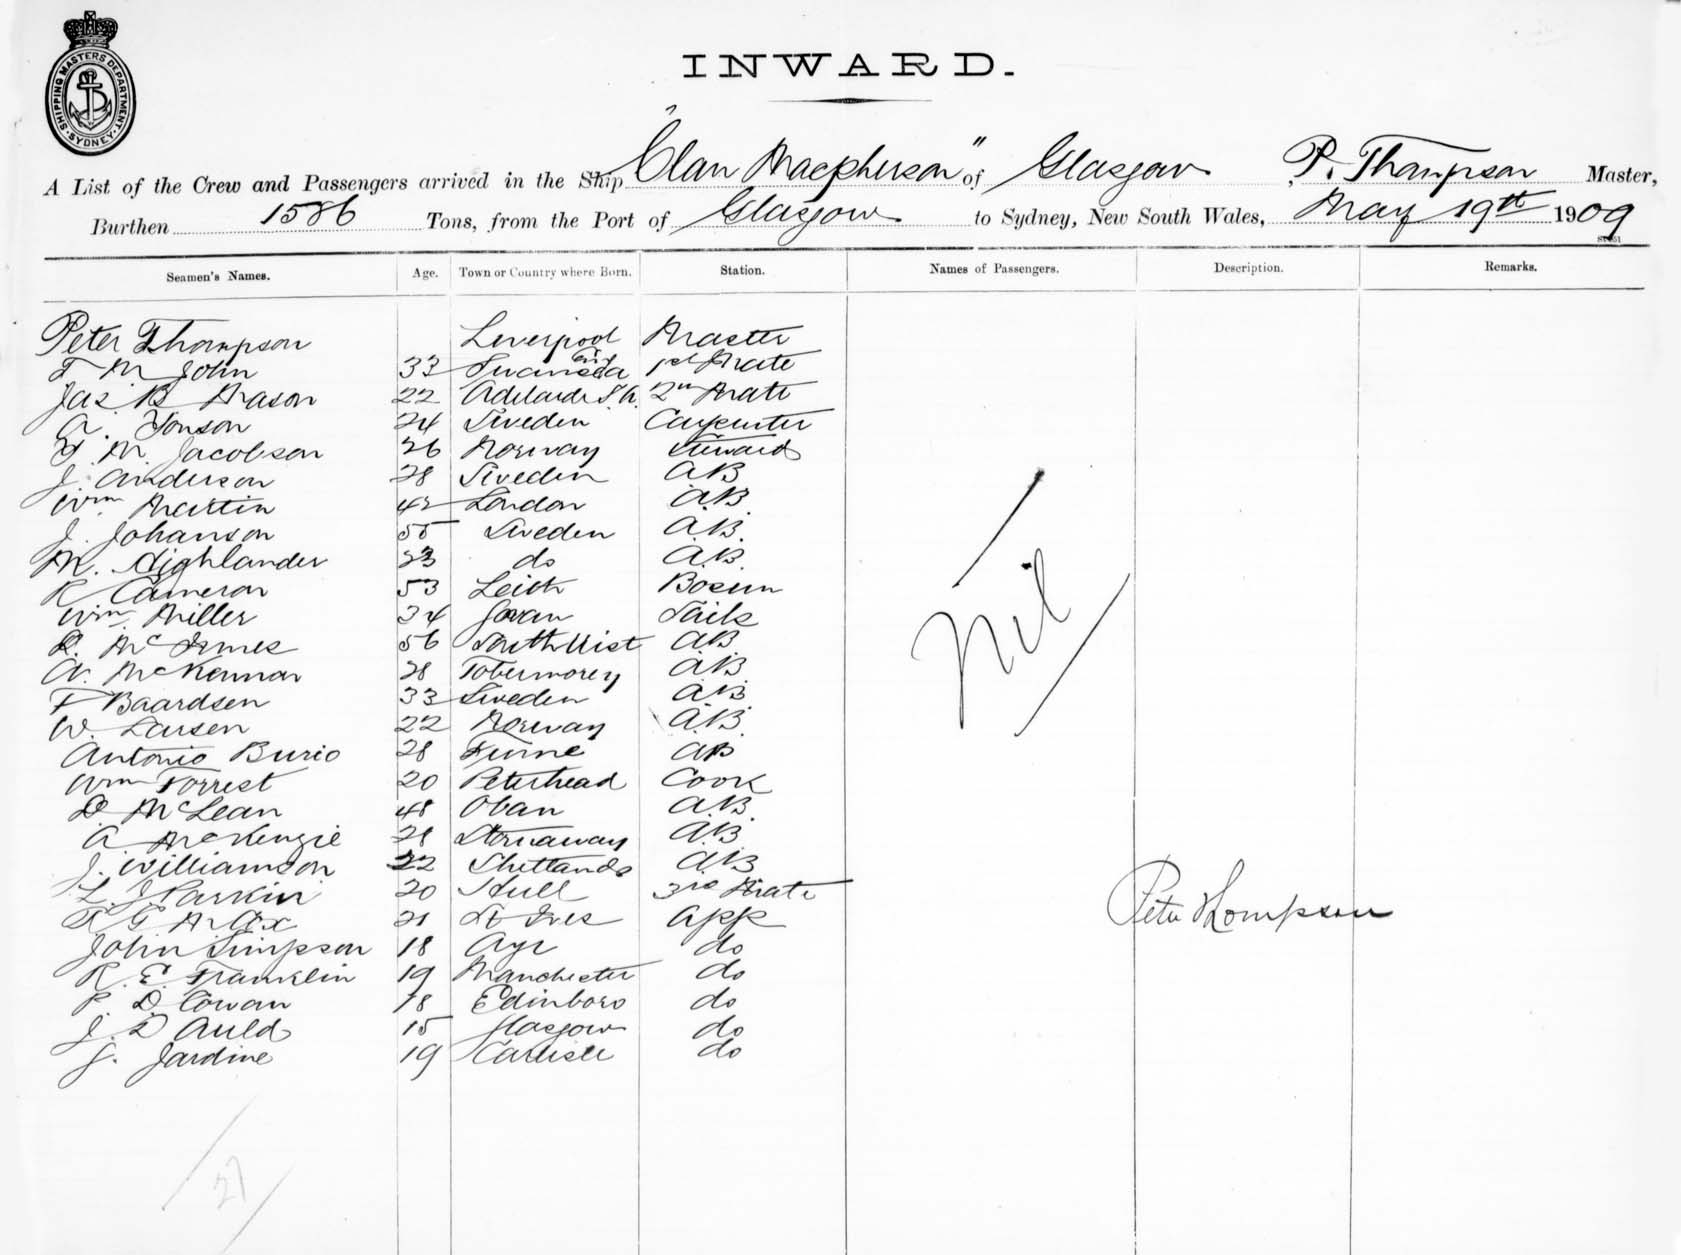 SHIPPING MASTERS DEPARTMENT SYDNEY
INWARD.
A List of the Crew and Passengers arrived in the Ship "Clan Macpherson" of Glasgow, P. Thompson Master,
Burthen 1586 Tons, from the Port of Glasgow to Sydney, New South Wales, May 19th 1909
Seamen's Names. Age. Town or Country where Born. Station. Names of Passengers. Description. Remarks.
Peter Thompson Liverpool Master
T M John 33 Swansea 1st Mate
Jas. B Mason 22 Adelaide S.A. 2nd Mate
A. Jonson 24 Sweden Carpenter
M. Jacobson 26 Norway Steward
J. Anderson 28 Sweden AB
Wm Martin 42 London A.B.
J. Johanson 55 Sweden A.B.
M. Highlander 23 do A.B.
R Cameron 53 Leith Bosun
Wm. Miller 34 Govan Sails
56 South Uist AB.
A. McKennar 28 Tobermorey AB
F Baardsen 33 Sweden AB
W. Larsen 22 Norway A.B.
Antonio Burio 28 Fiume AB
Wm Forrest 20 Peterhead Cook
D McLean 48 Oban A.B.
A McKenzie 28 Stornaway A.B
J. Williamson 22 Shetlands A.B
L. J. Parkin 20 Hull 3rd Mate
21 St Ives App
John Simpson 18 Ayr do
R. E. Franklin 19 Manchester do
P. D. Cowan 18 Edinboro do
J. D Auld 15 Glasgow do
J. Jardine 19 Carlisle do
Nil
Peter Thompson
27